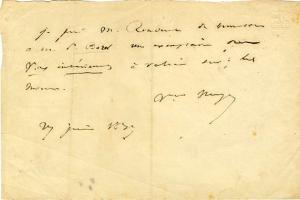 je prie M. Renduel de remettre
à M. P. Borel un exemplaire des
Voix intérieures à valoir sur les
miens.
Victor Hugo
27 juin 1837